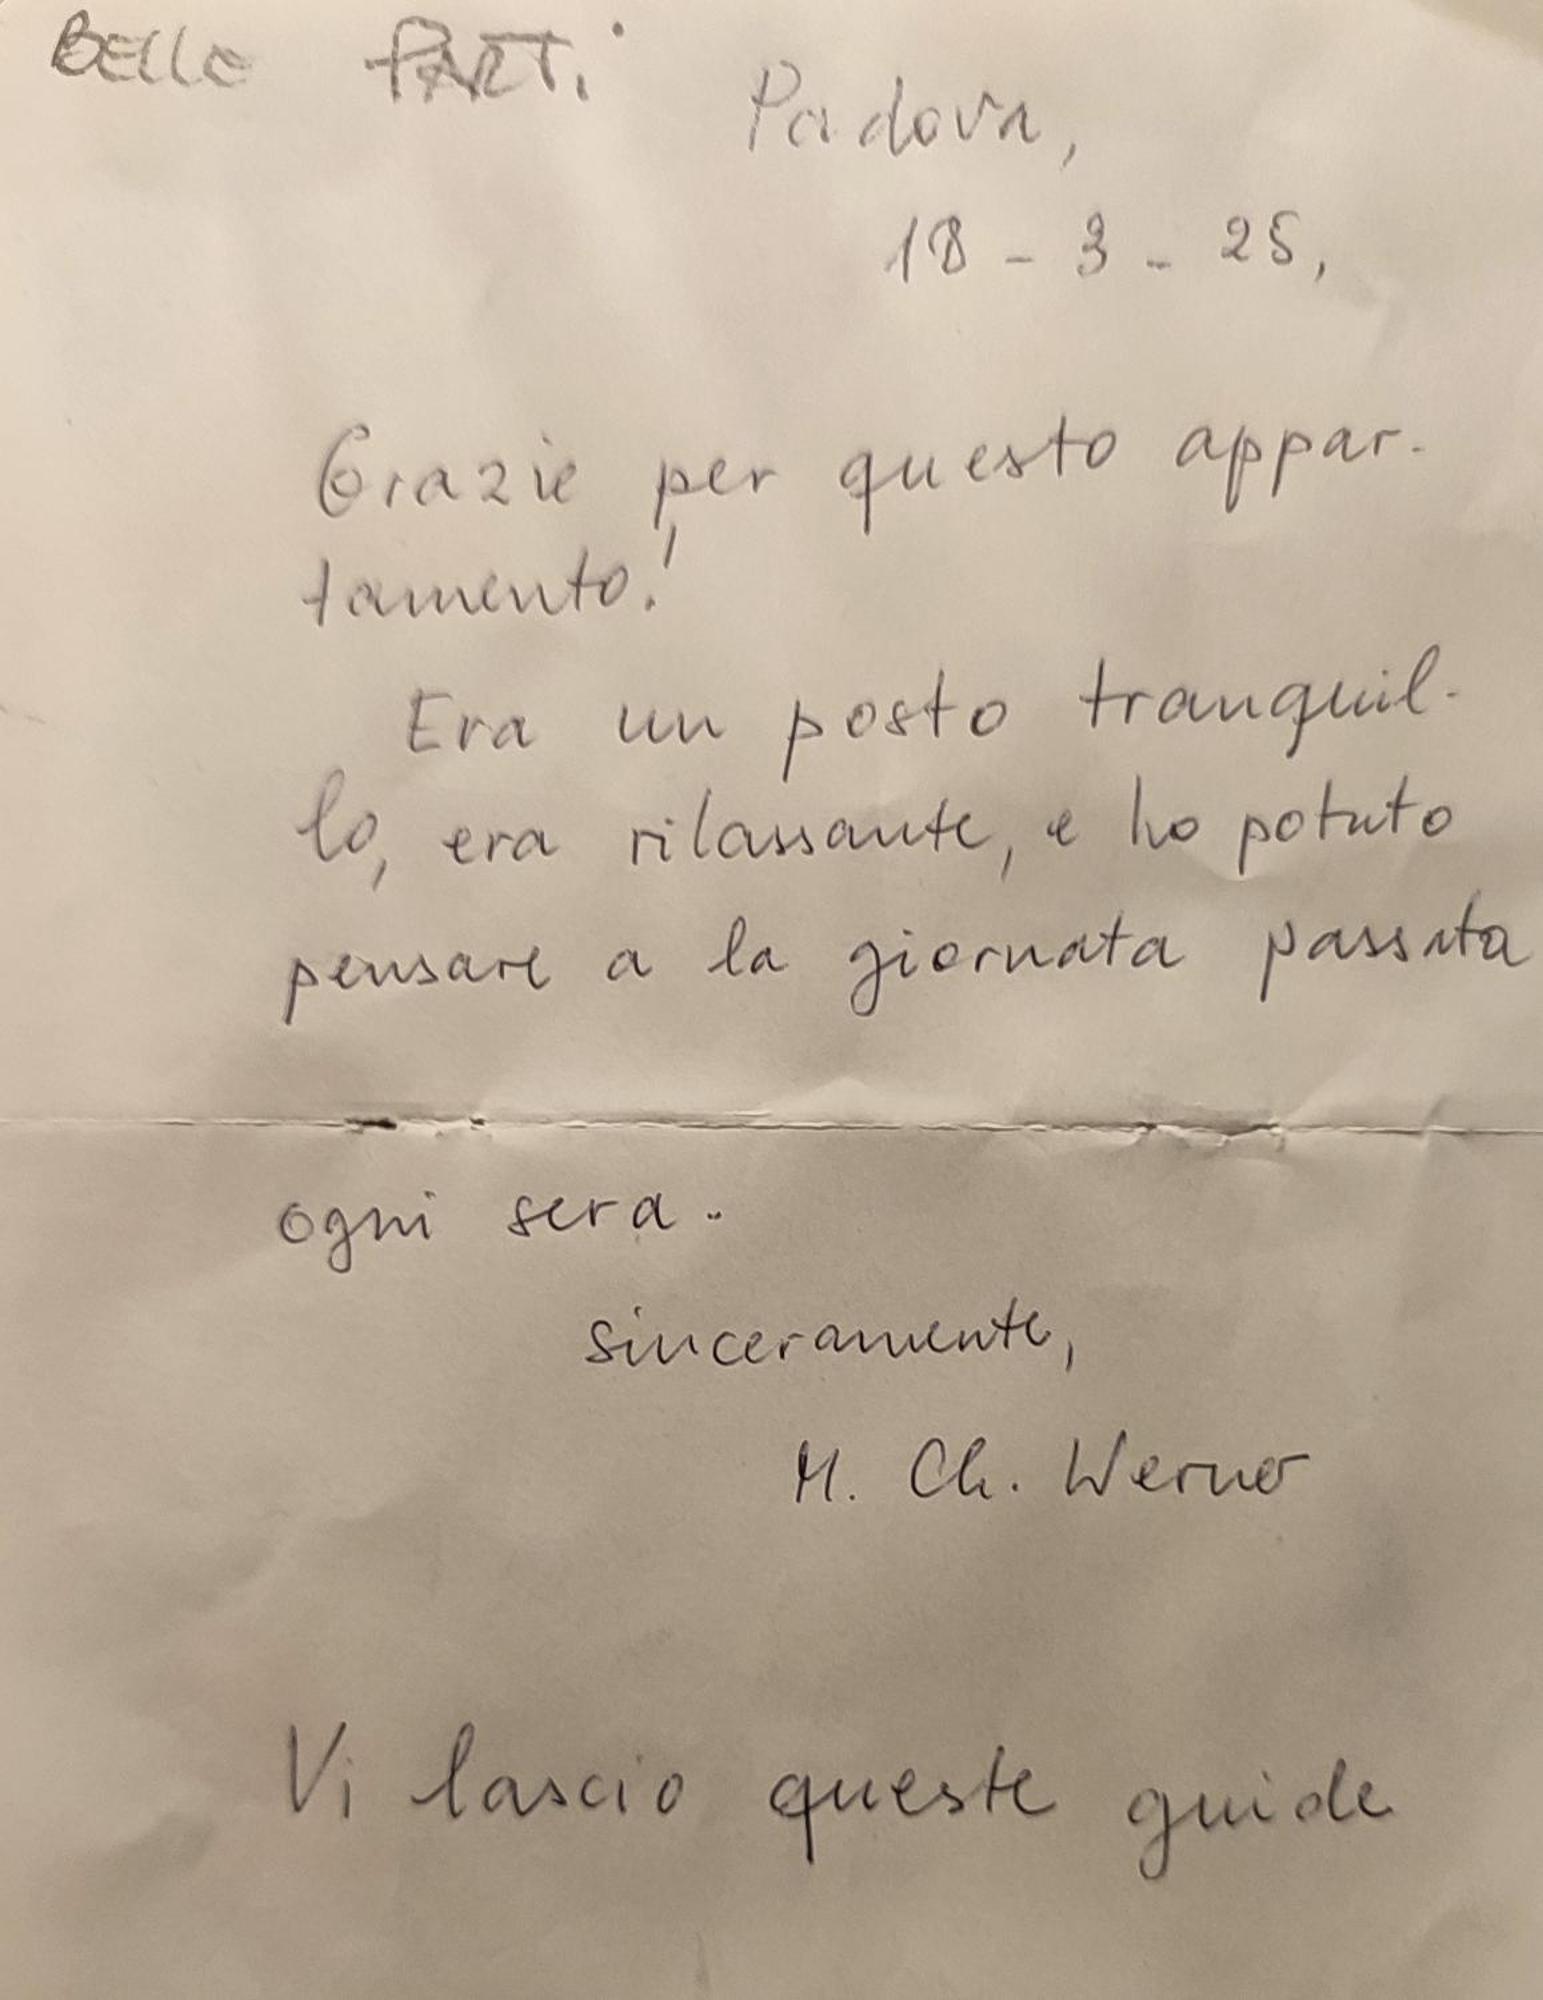 BELLE PARTI
Padova,
18 - 3 - 25,
Grazie per questo appar-
tamento!
Era un posto tranquil-
lo, era rilassante, e ho potuto
pensare a la giornata passata
ogni sera.
sinceramente,
M. Ch. Werner
Vi lascio queste guide